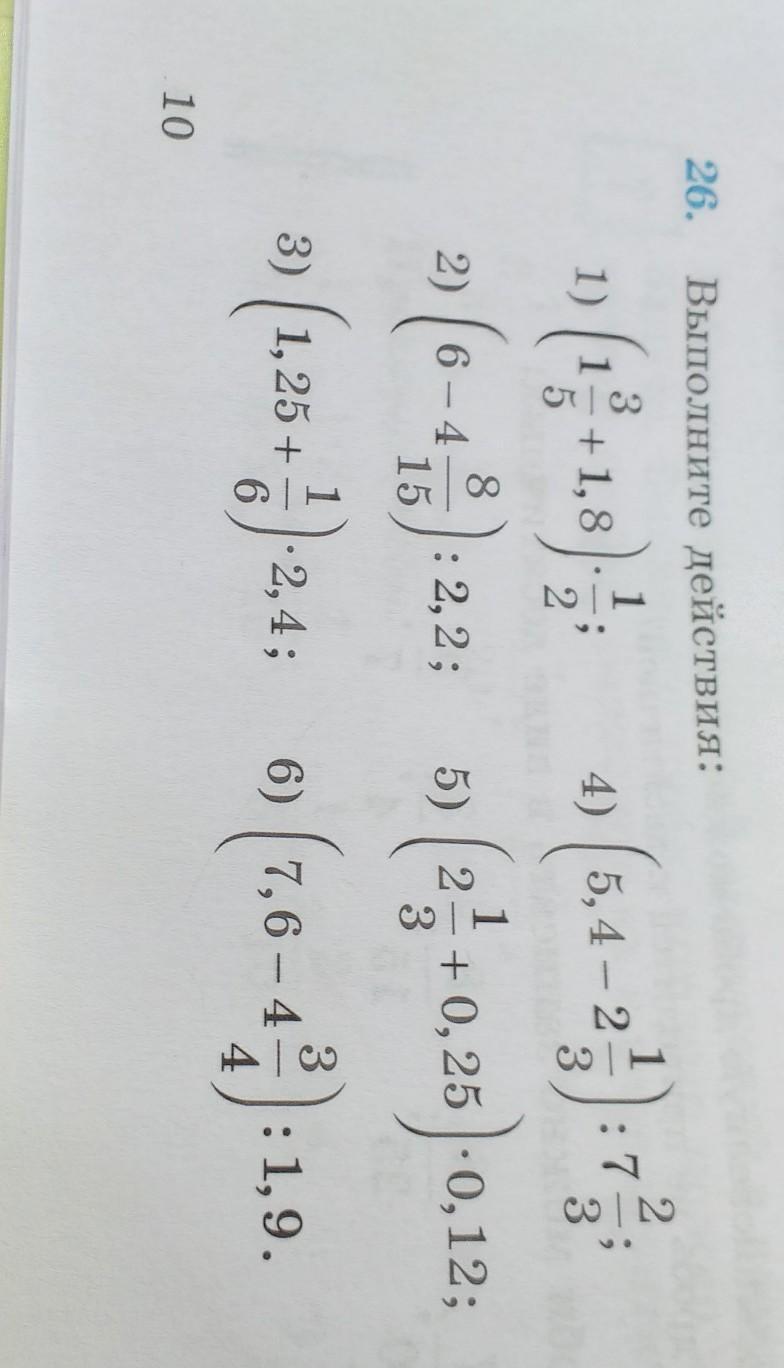 26. Выполните действия:
1) (1 3/5 + 1,8) · 1/2; 4) (5,4 − 2 1/3) : 7 2/3;
2) (6 − 4 8/15) : 2,2; 5) (2 1/3 + 0,25) · 0,12;
3) (1,25 + 1/6) · 2,4; 6) (7,6 − 4 3/4) : 1,9.
10